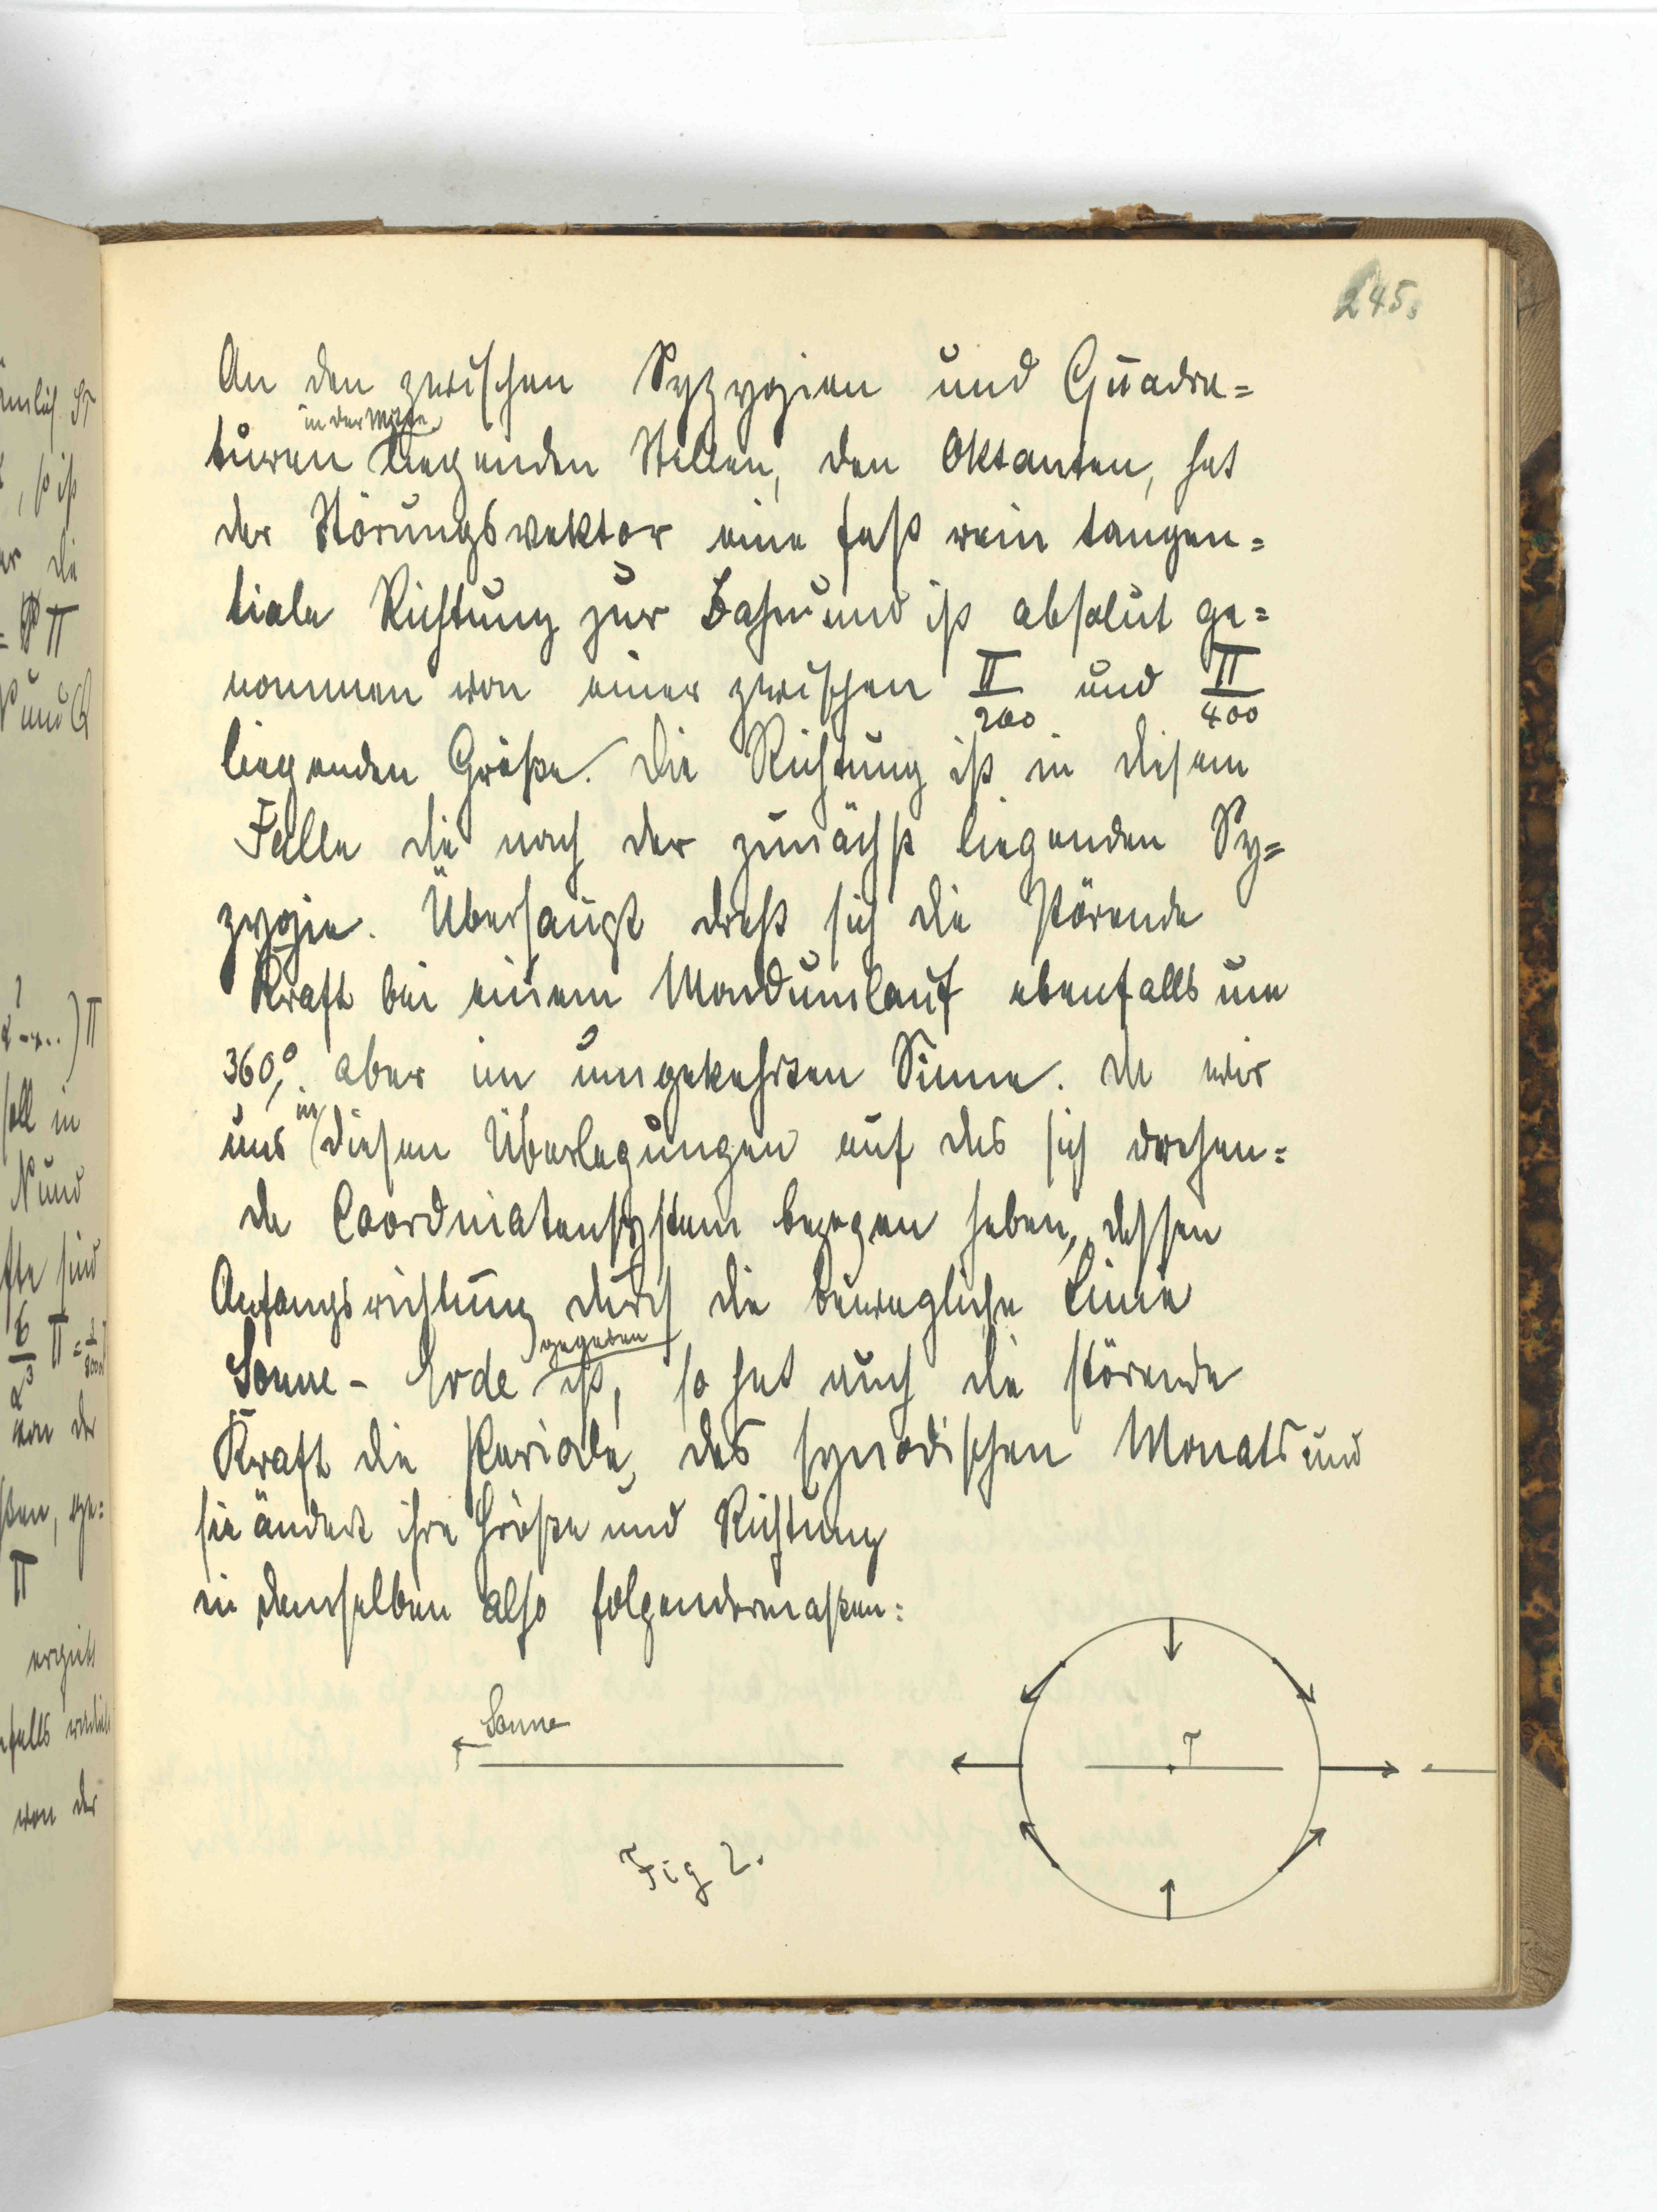 245.
An den zwischen Syzygien und Quadra=
in der Mitte
turen liegenden Stellen, den Oktanten, hat
der Störungsvektor eine fast rein tangen=
tiale Richtung zur Bahn und ist absolut ge=
nommen von einer zwischen Π/200 und Π/400
liegenden Größe. Die Richtung ist in diesem
Falle die nach der zunächst liegenden Sy=
zygie. Überhaupt dreht sich die störende
Kraft bei einem Mondumlauf ebenfalls um
360°, aber im umgekehrten Sinne. Da wir
in
uns diesen Überlegungen auf das sich drehen=
de Coordinatensystem bezogen haben, dessen
Anfangsrichtung durch die bewegliche Linie
gegeben
Sonne - Erde ist, so hat auch die störende
Kraft die Periode, des synodischen Monats und
sie ändert ihre Größe und Richtung
in demselben also folgendermaßen:
Sonne
T
Fig 2.